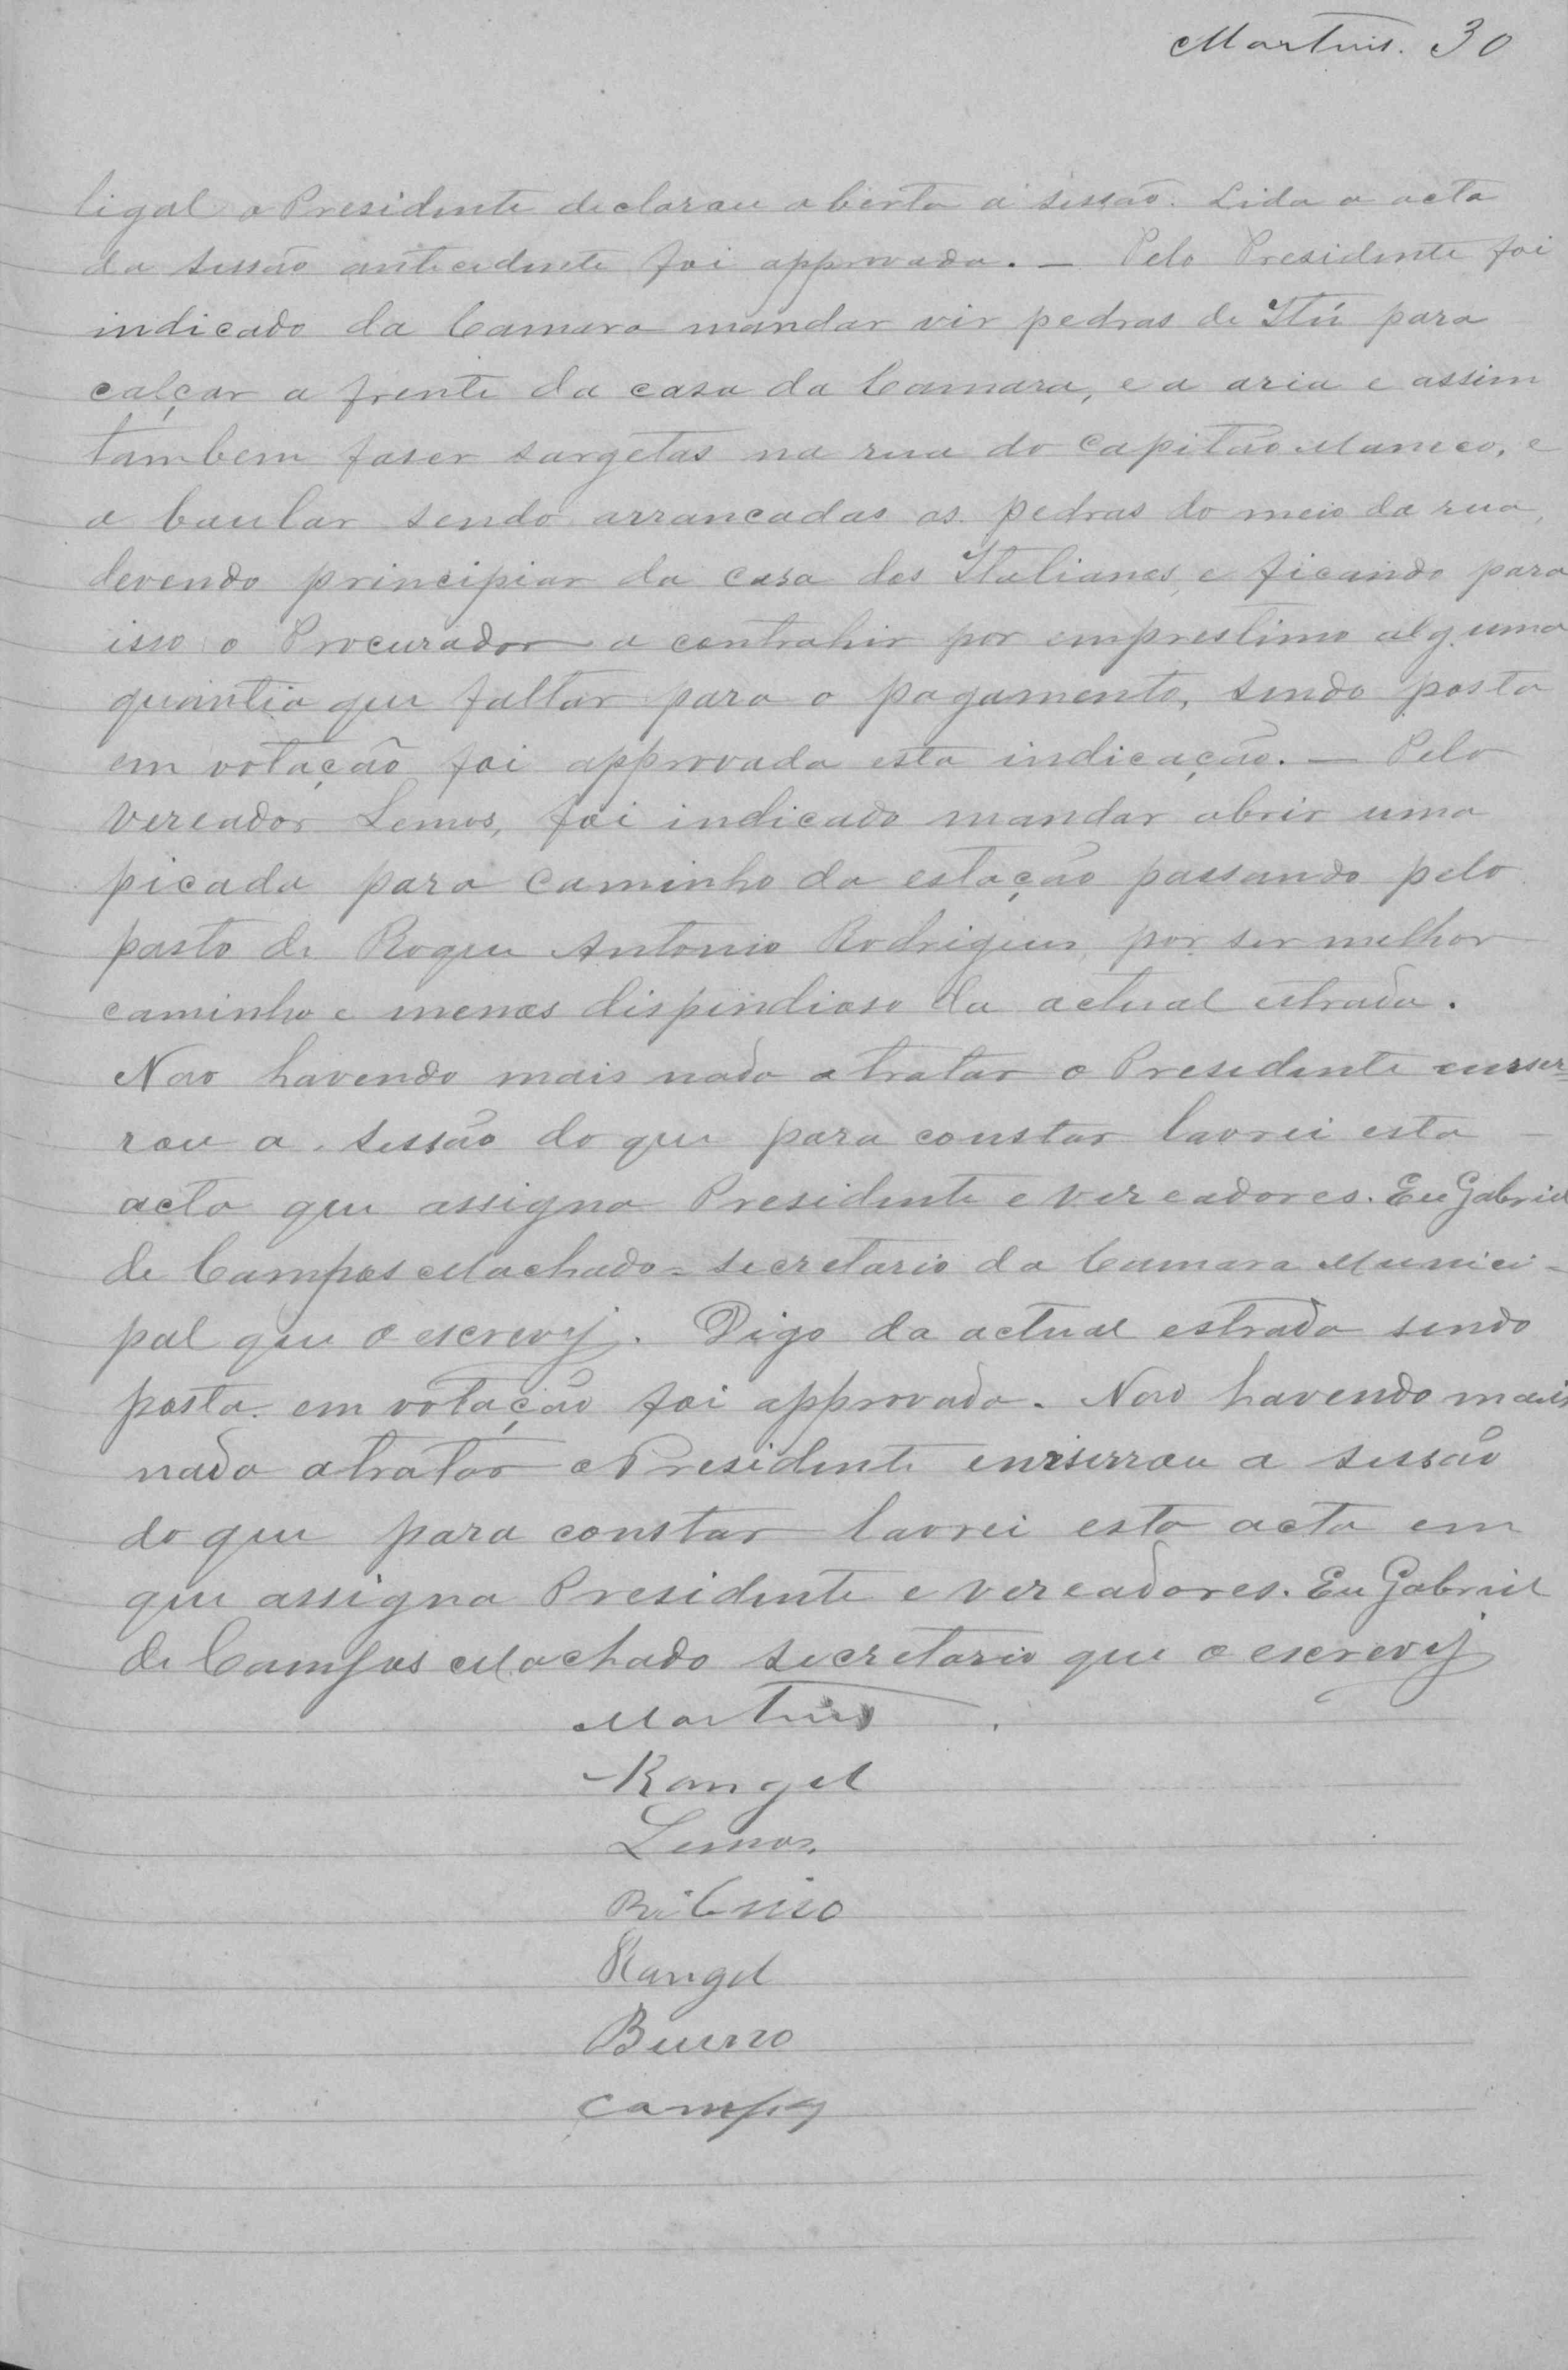 Martins. 30
ligal o Presidente declarou aberta a sessão. Lida a acta
da sessão antecedente foi approvada. — Pelo Presidente foi
indicado da Camara mandar vir pedras de Itú para
calçar a frente da casa da Camara, e a aria e assim
tambem faser sargetas na rua do Capitão Maneco, e
a baular sendo arrancadas as pedras do meio da rua,
devendo principiar da casa dos Italianos, e ficando para
isso o Procurador a contrahir por emprestimo alguma
quantia que faltar para o pagamento, sendo posta
em votação foi approvada esta indicação. — Pelo
vereador Lemos, foi indicado mandar abrir uma
picada para caminho da estação passando pelo
pasto de Roque Antonio Rodrigues, por ser melhor
caminho e menos dispendioso da actual estrada.
Nao havendo mais nada a tratar o Presidente enser=
rou a sessão do que para constar lavrei esta —
acta que assigna Presidente e vereadores. Eu Gabriel
de Campos Machado = secretario da Camara Munici-
pal que o escrevy. Digo da actual estrada sendo
posta em votação foi approvada. Nao havendo mais
nada a tratar o Presidente enserrou a sessão
do que para constar lavrei esta acta em
que assigna Presidente e vereadores. Eu Gabriel
de Campos Machado secretario que o escrevy
Martins
Rangel
Lemos.
Ribeiro
Rangel
Bueno
Campos